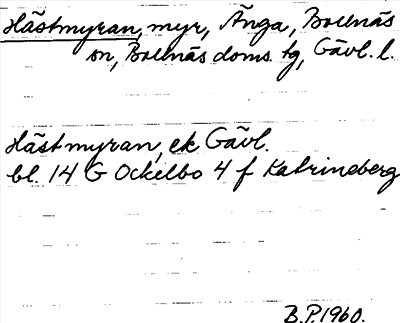 Hästmyran, myr, Änga, Bollnäs
sn, Bollnäs doms. tg, Gävl. l.
Hästmyran, ek Gävl.
bl. 14 G Ockelbo 4 f Katrineberg
B.P. 1960.